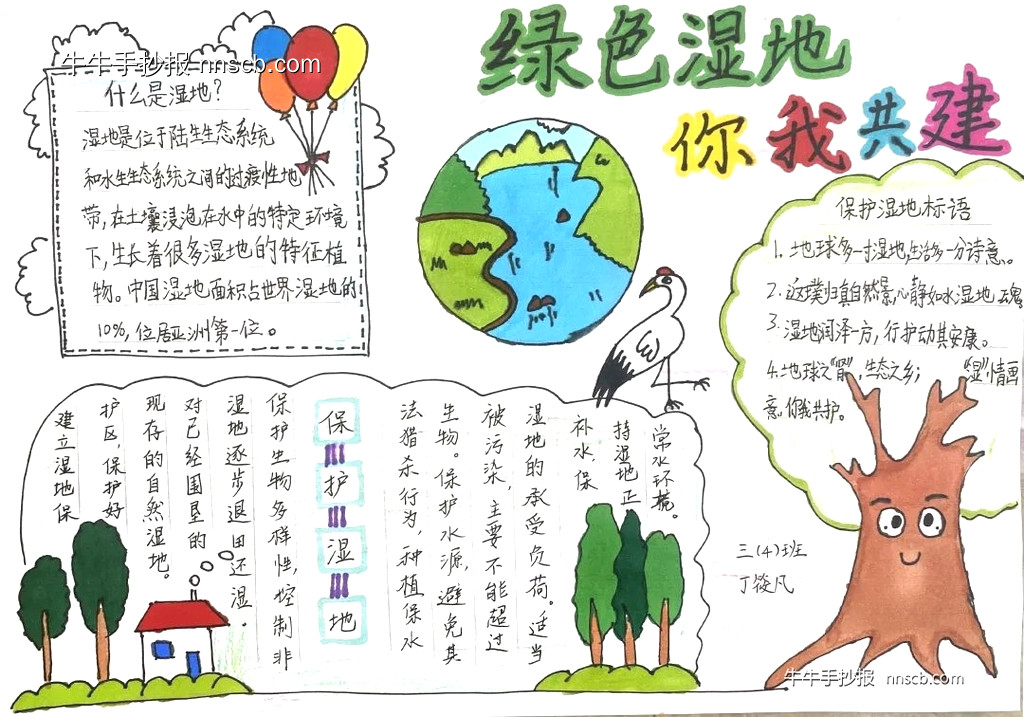 牛牛手抄报 nnscb.com
绿色湿地
你我共建
什么是湿地?
湿地是位于陆生生态系统
和水生生态系统之间的过渡性地
带,在土壤浸泡在水中的特定环境
下,生长着很多湿地的特征植
物。中国湿地面积占世界湿地的
10%,位居亚洲第一位。
保护湿地标语
1.地球多一寸湿地,生活多一分诗意。
2.返璞归真自然景,心静如水湿地魂
3.湿地润泽一方,行护动其安康。
4.地球之“肾”,生态之乡; “湿”情画
意,你我共护。
保护湿地
建立湿地保
护区,保护好
现存的自然湿地。
对已经围垦的
湿地逐步退田还湿.
保护生物多样性,控制非
法猎杀行为,种植保水
生物。保护水源,避免其
被污染,主要不能超过
湿地的承受负荷。适当
补水,保
持湿地正
常水环境。
三(4)班
丁筱凡
牛牛手抄报 nnscb.com